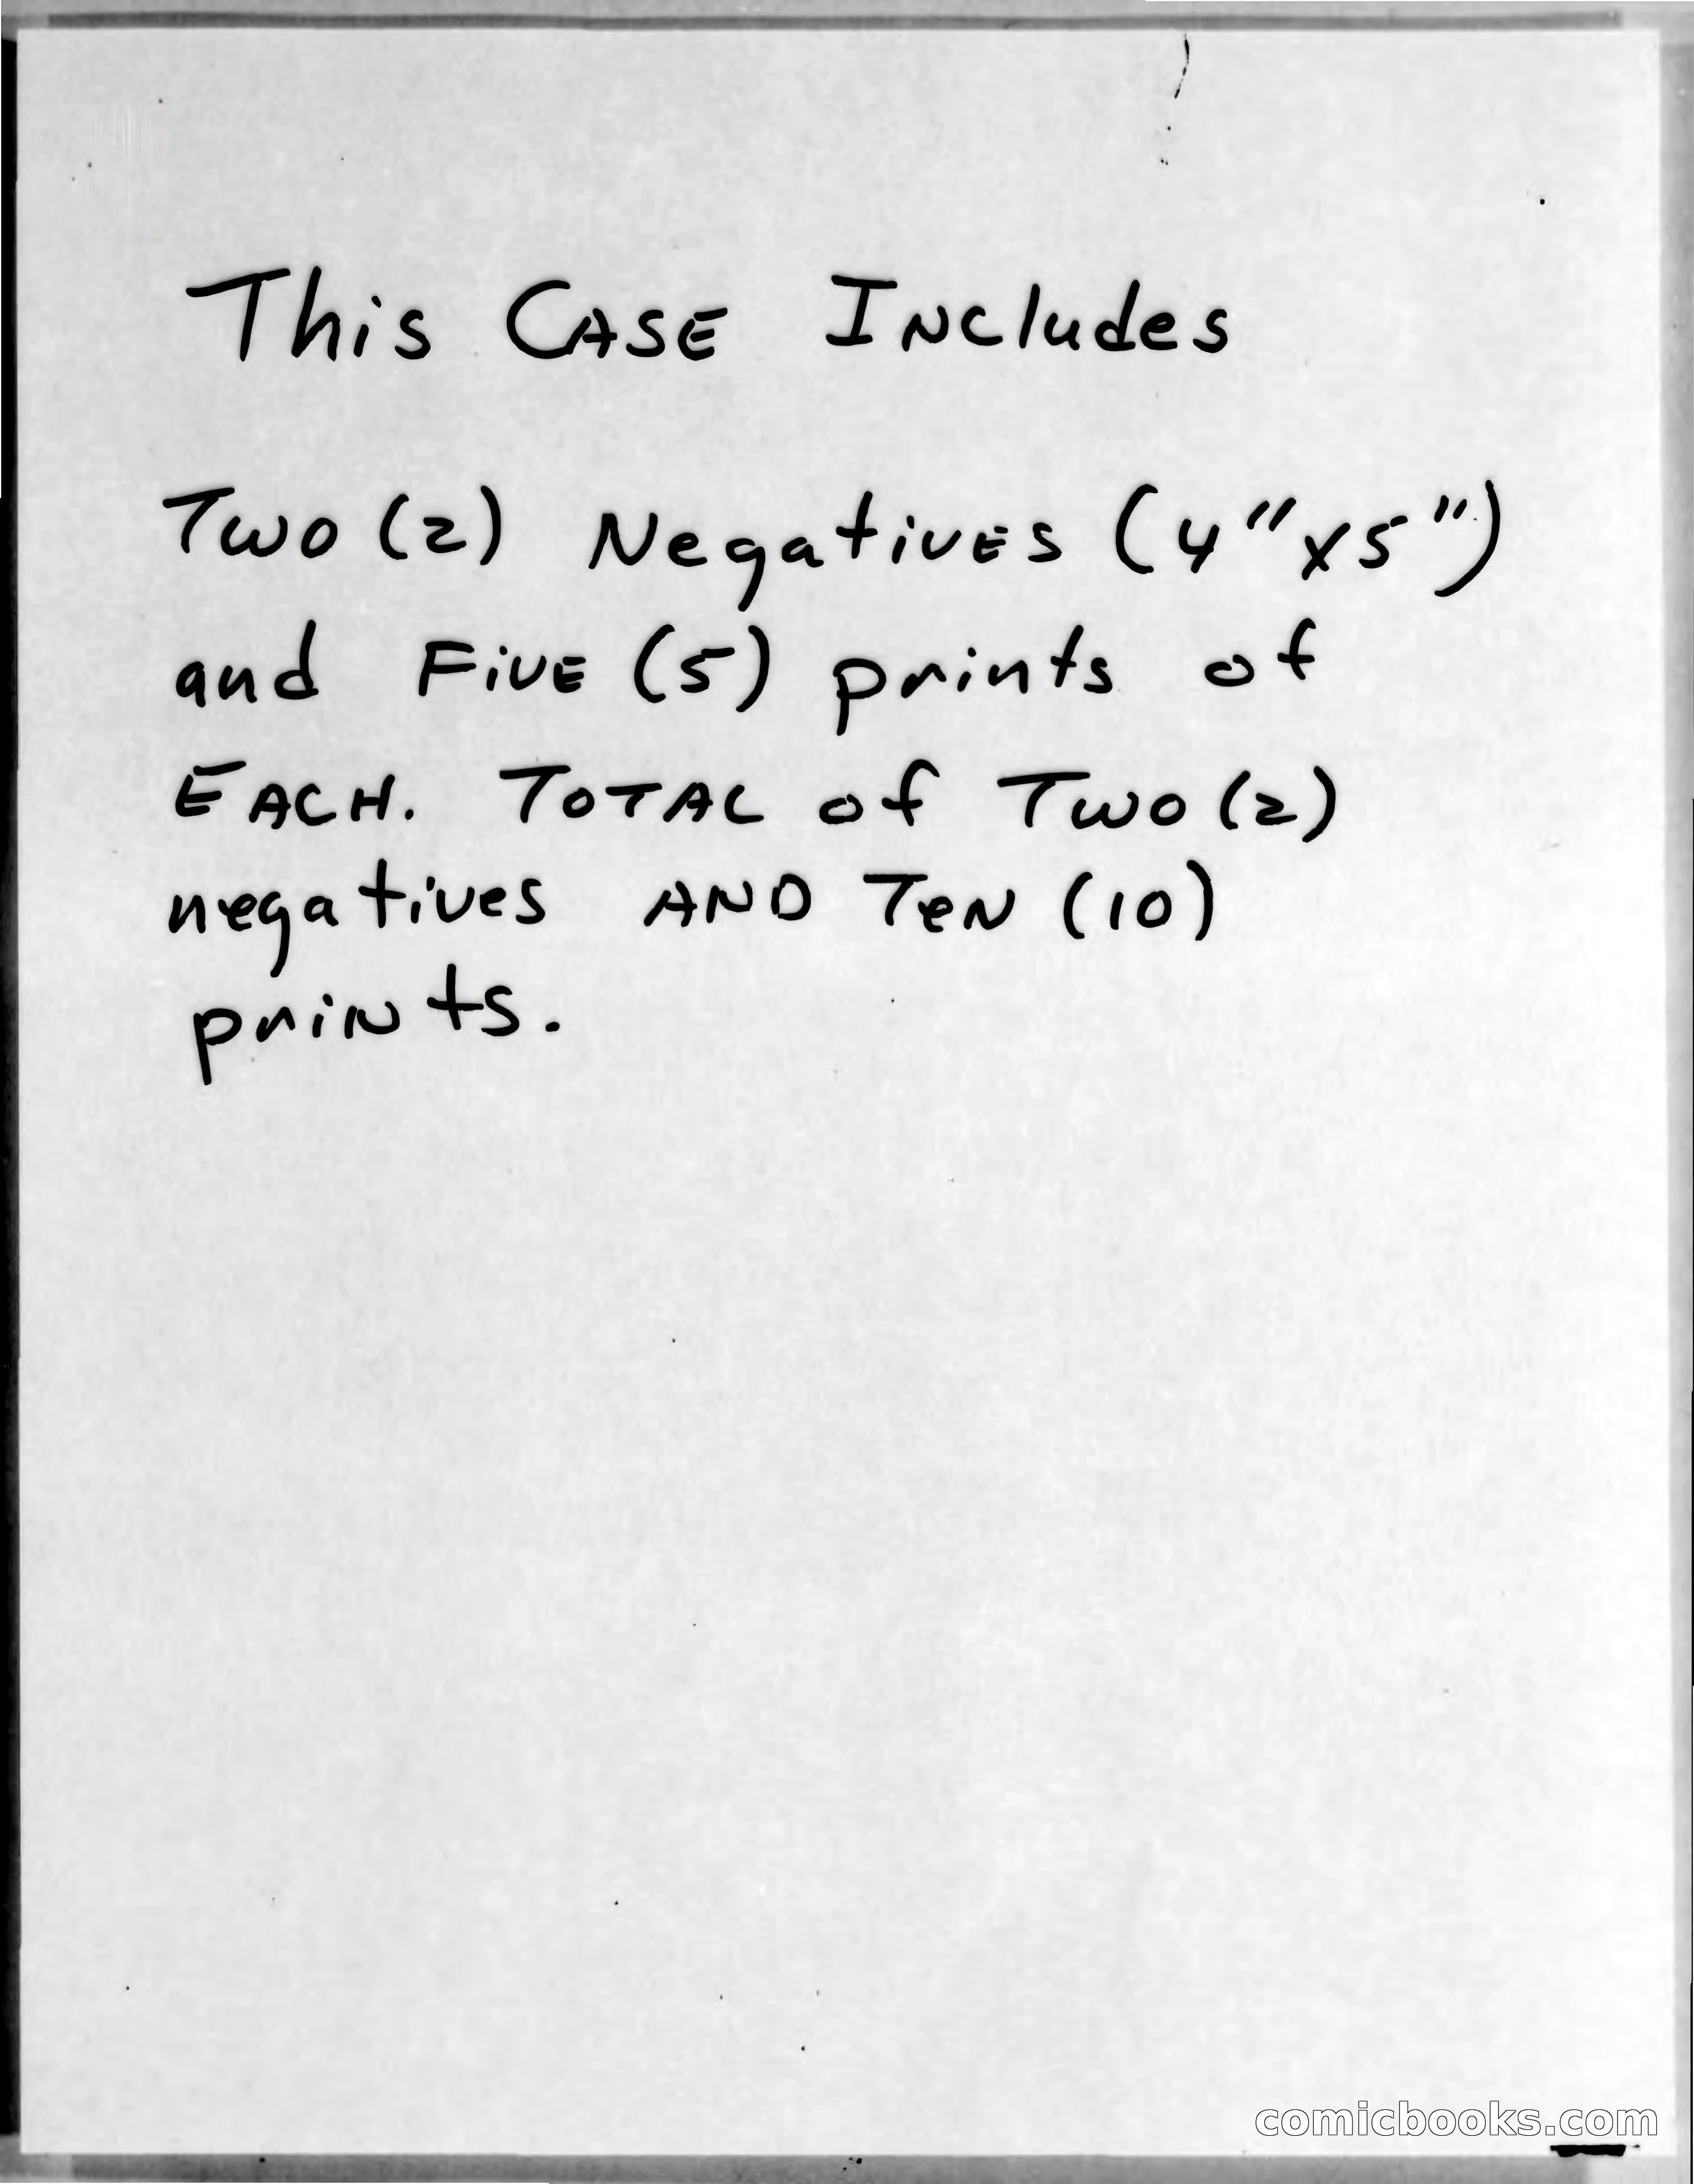 This CASE INcludes
Two (2) NegativES (4"x5")
and FivE (5) prints of
EACH. TOTAL of Two (2)
negatives AND TeN (10)
priNts.
comicbooks.com